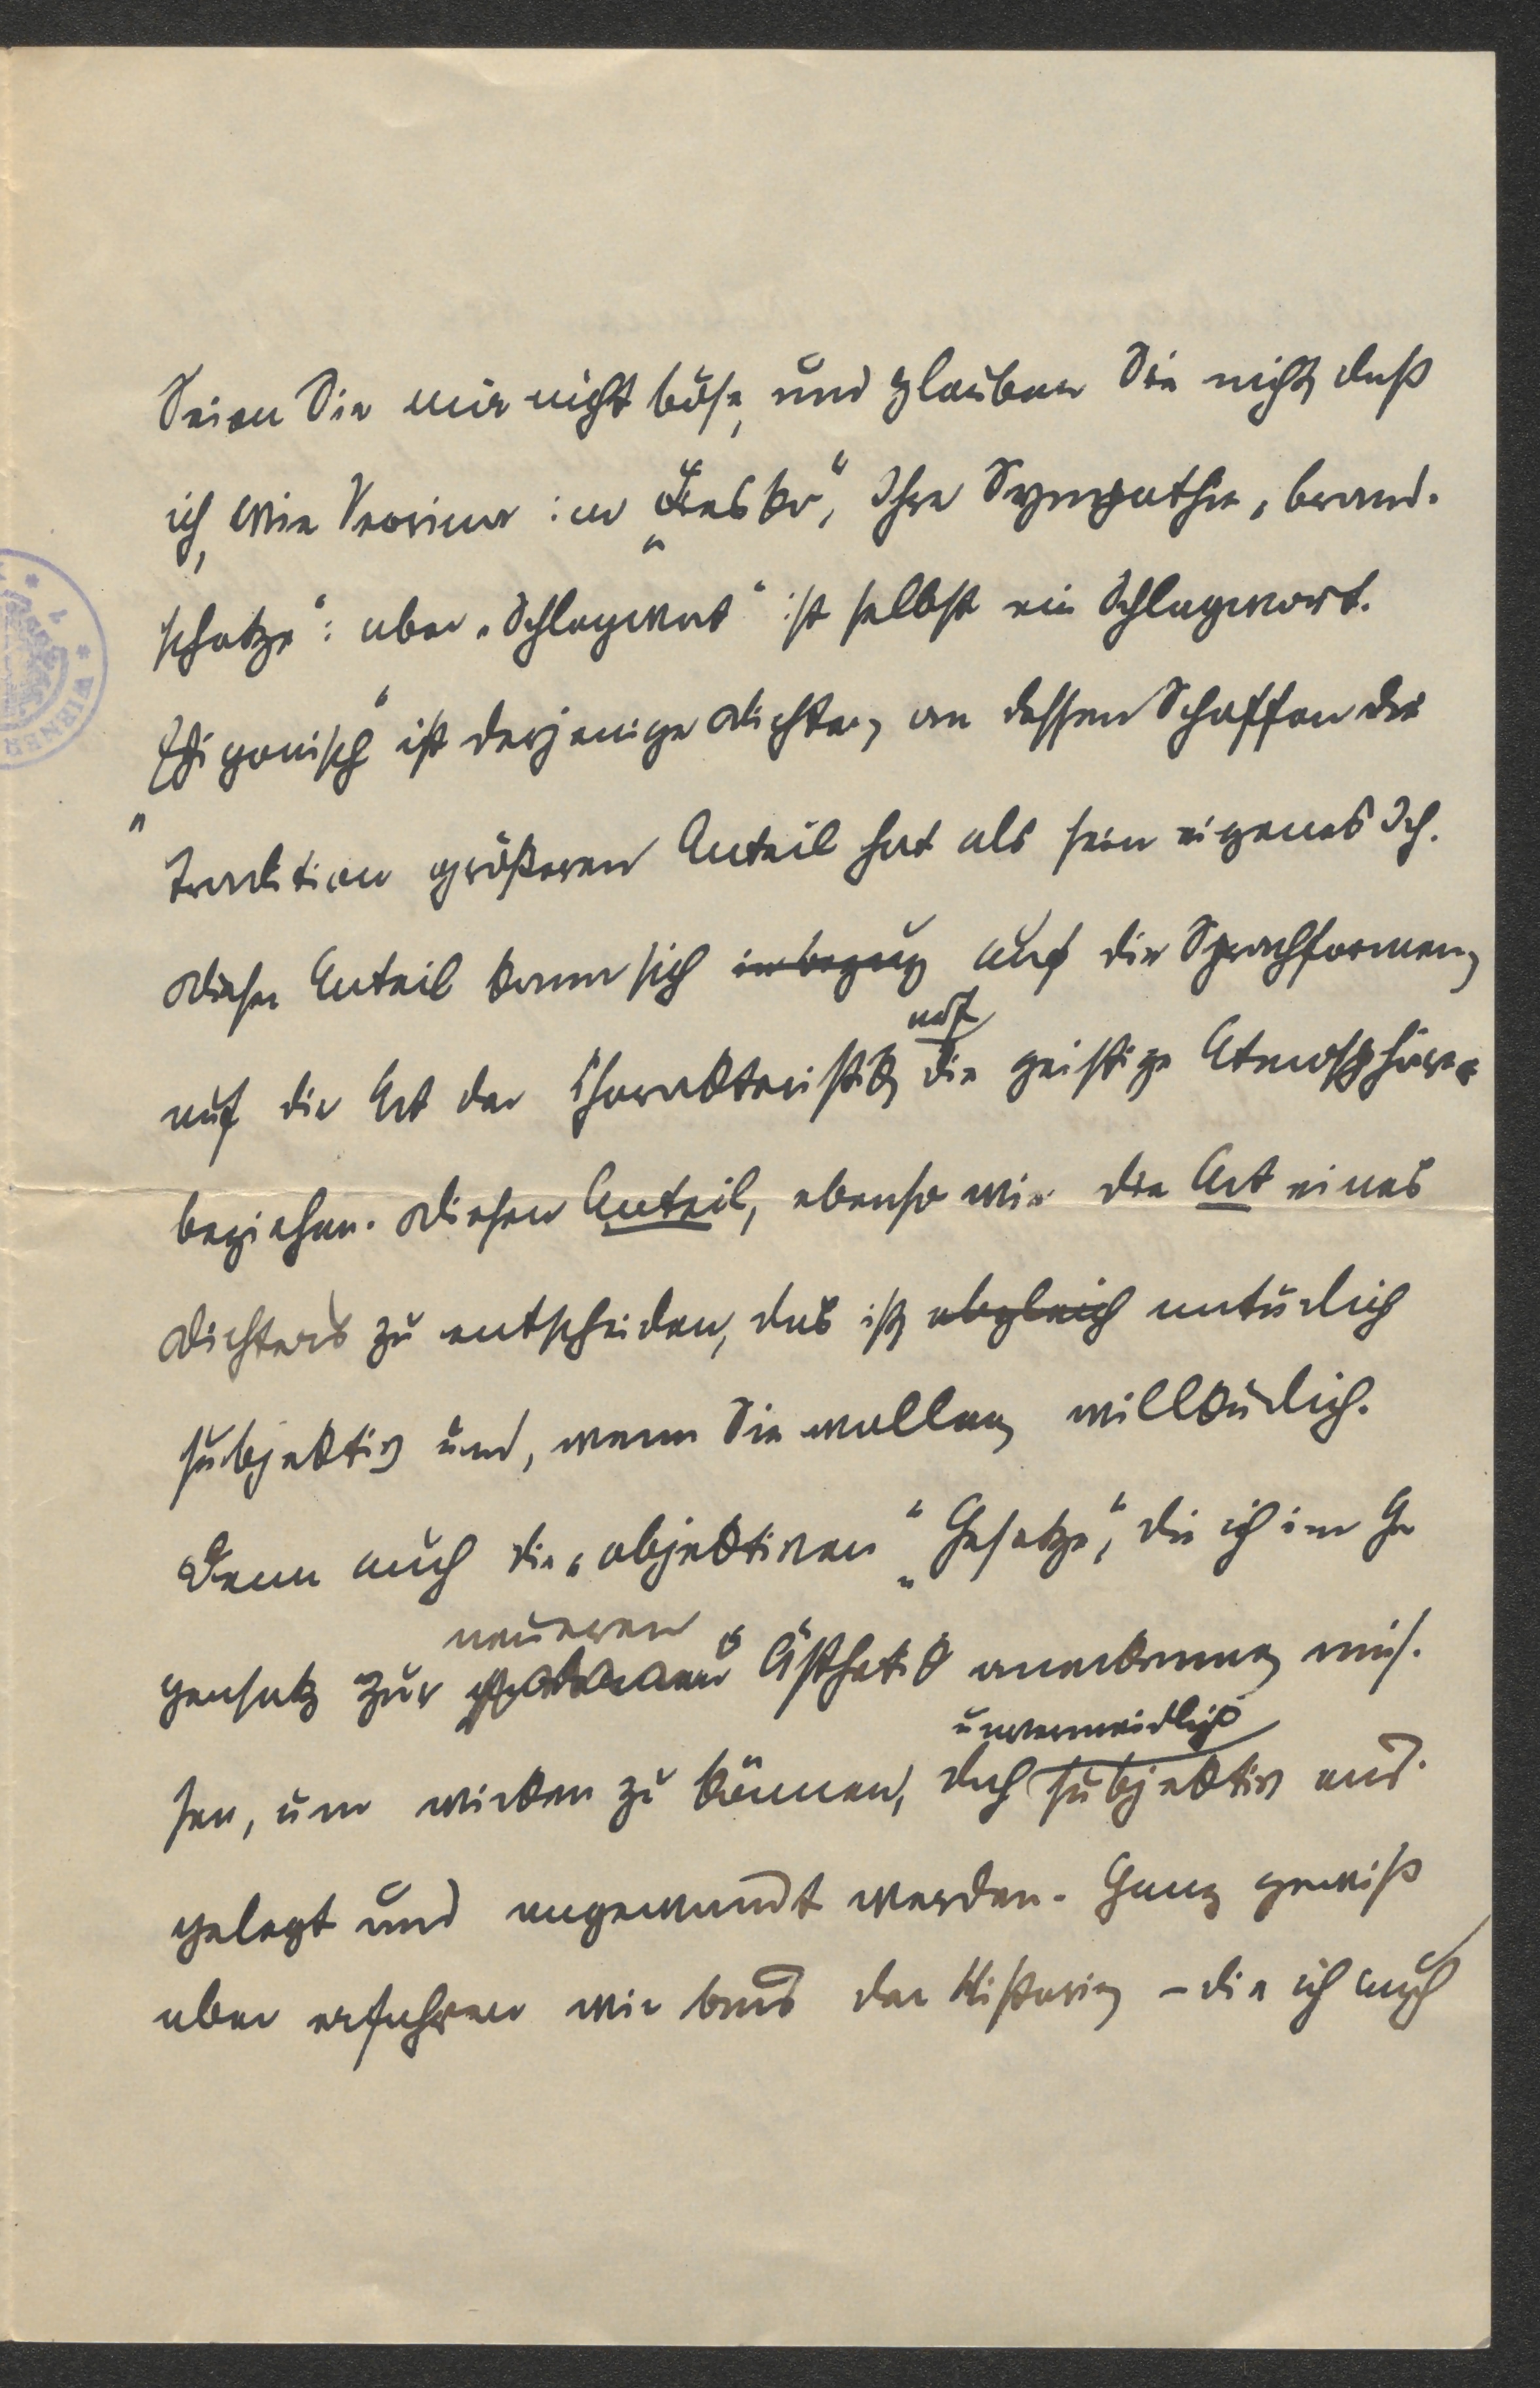 Seien Sie mir nicht böse, und glauben Sie nicht, daß
ich, wie Verrina im „Fiesko“, Ihre Sympathie „brand-
schatze“: aber „Schlagwort“ ist selbst ein Schlagwort.
„Epigonisch“ ist derjenige Dichter, an dessen Schaffen die
Tradition größeren Anteil hat als sein eigenes Ich.
Dieser Anteil kann sich in bezug auf die Sprachformen,
auf die Art der Charakteristik, auf die geistige Atmosphäre
beziehen. Diesen Anteil, ebenso wie die Art eines
Dichters zu entscheiden, das ist, obgleich natürlich
subjektiv und, wenn Sie wollen, willkürlich.
Denn auch die „objektiven“ „Gesetze“, die ich im Ge
gensatz zur neueren Ästhetik anerkenne, müs-
sen, um wirken zu können, doch unvermeidlich subjektiv aus-
gelegt und angewandt werden. Ganz gewiß
aber erfahren wir aus der Historie, – die ich auch
WIENER